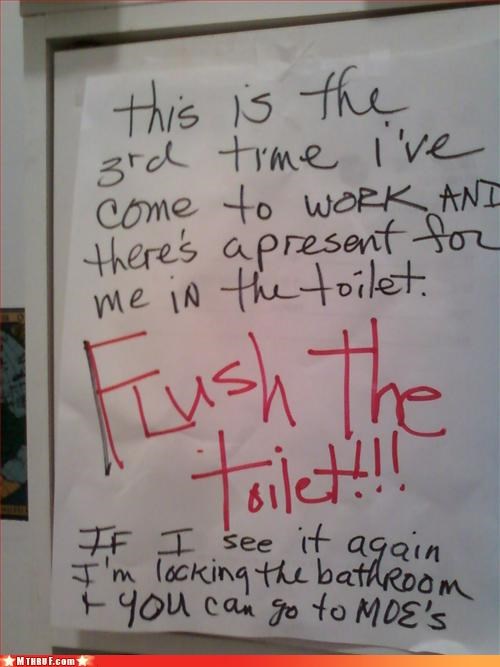 this is the
3rd time i've
come to WORK AND
there's a present for
me IN the toilet.
FLush the
toilet!!!
IF I see it again
I'm locking the bathROOM
+ YOU can go to MOE's
MTHRUF.com